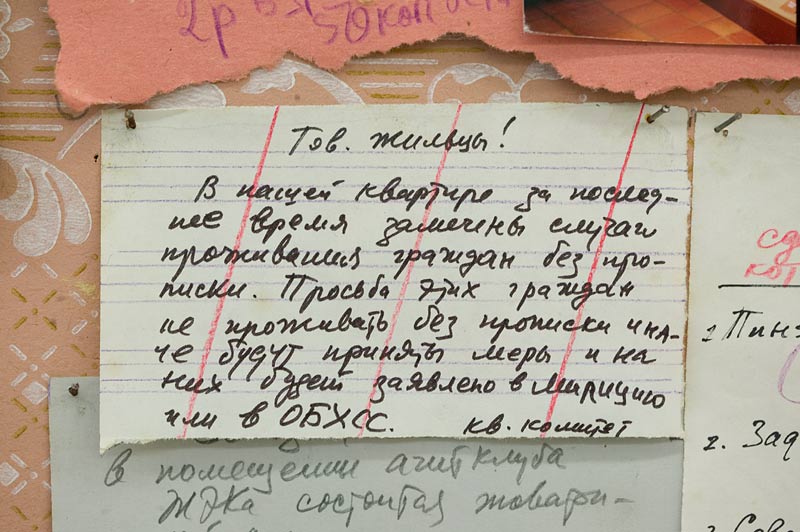 2р
50 коп
Тов. жильцы!
В нашей квартире за послед-
нее время замечены случаи
проживания граждан без про-
писки. Просьба этих граждан
не проживать без прописки ина-
че будут приняты меры и на
них будет заявлено в милицию
или в ОБХСС. кв. комитет
в помещении агитклуба
ЖЭКа состоится